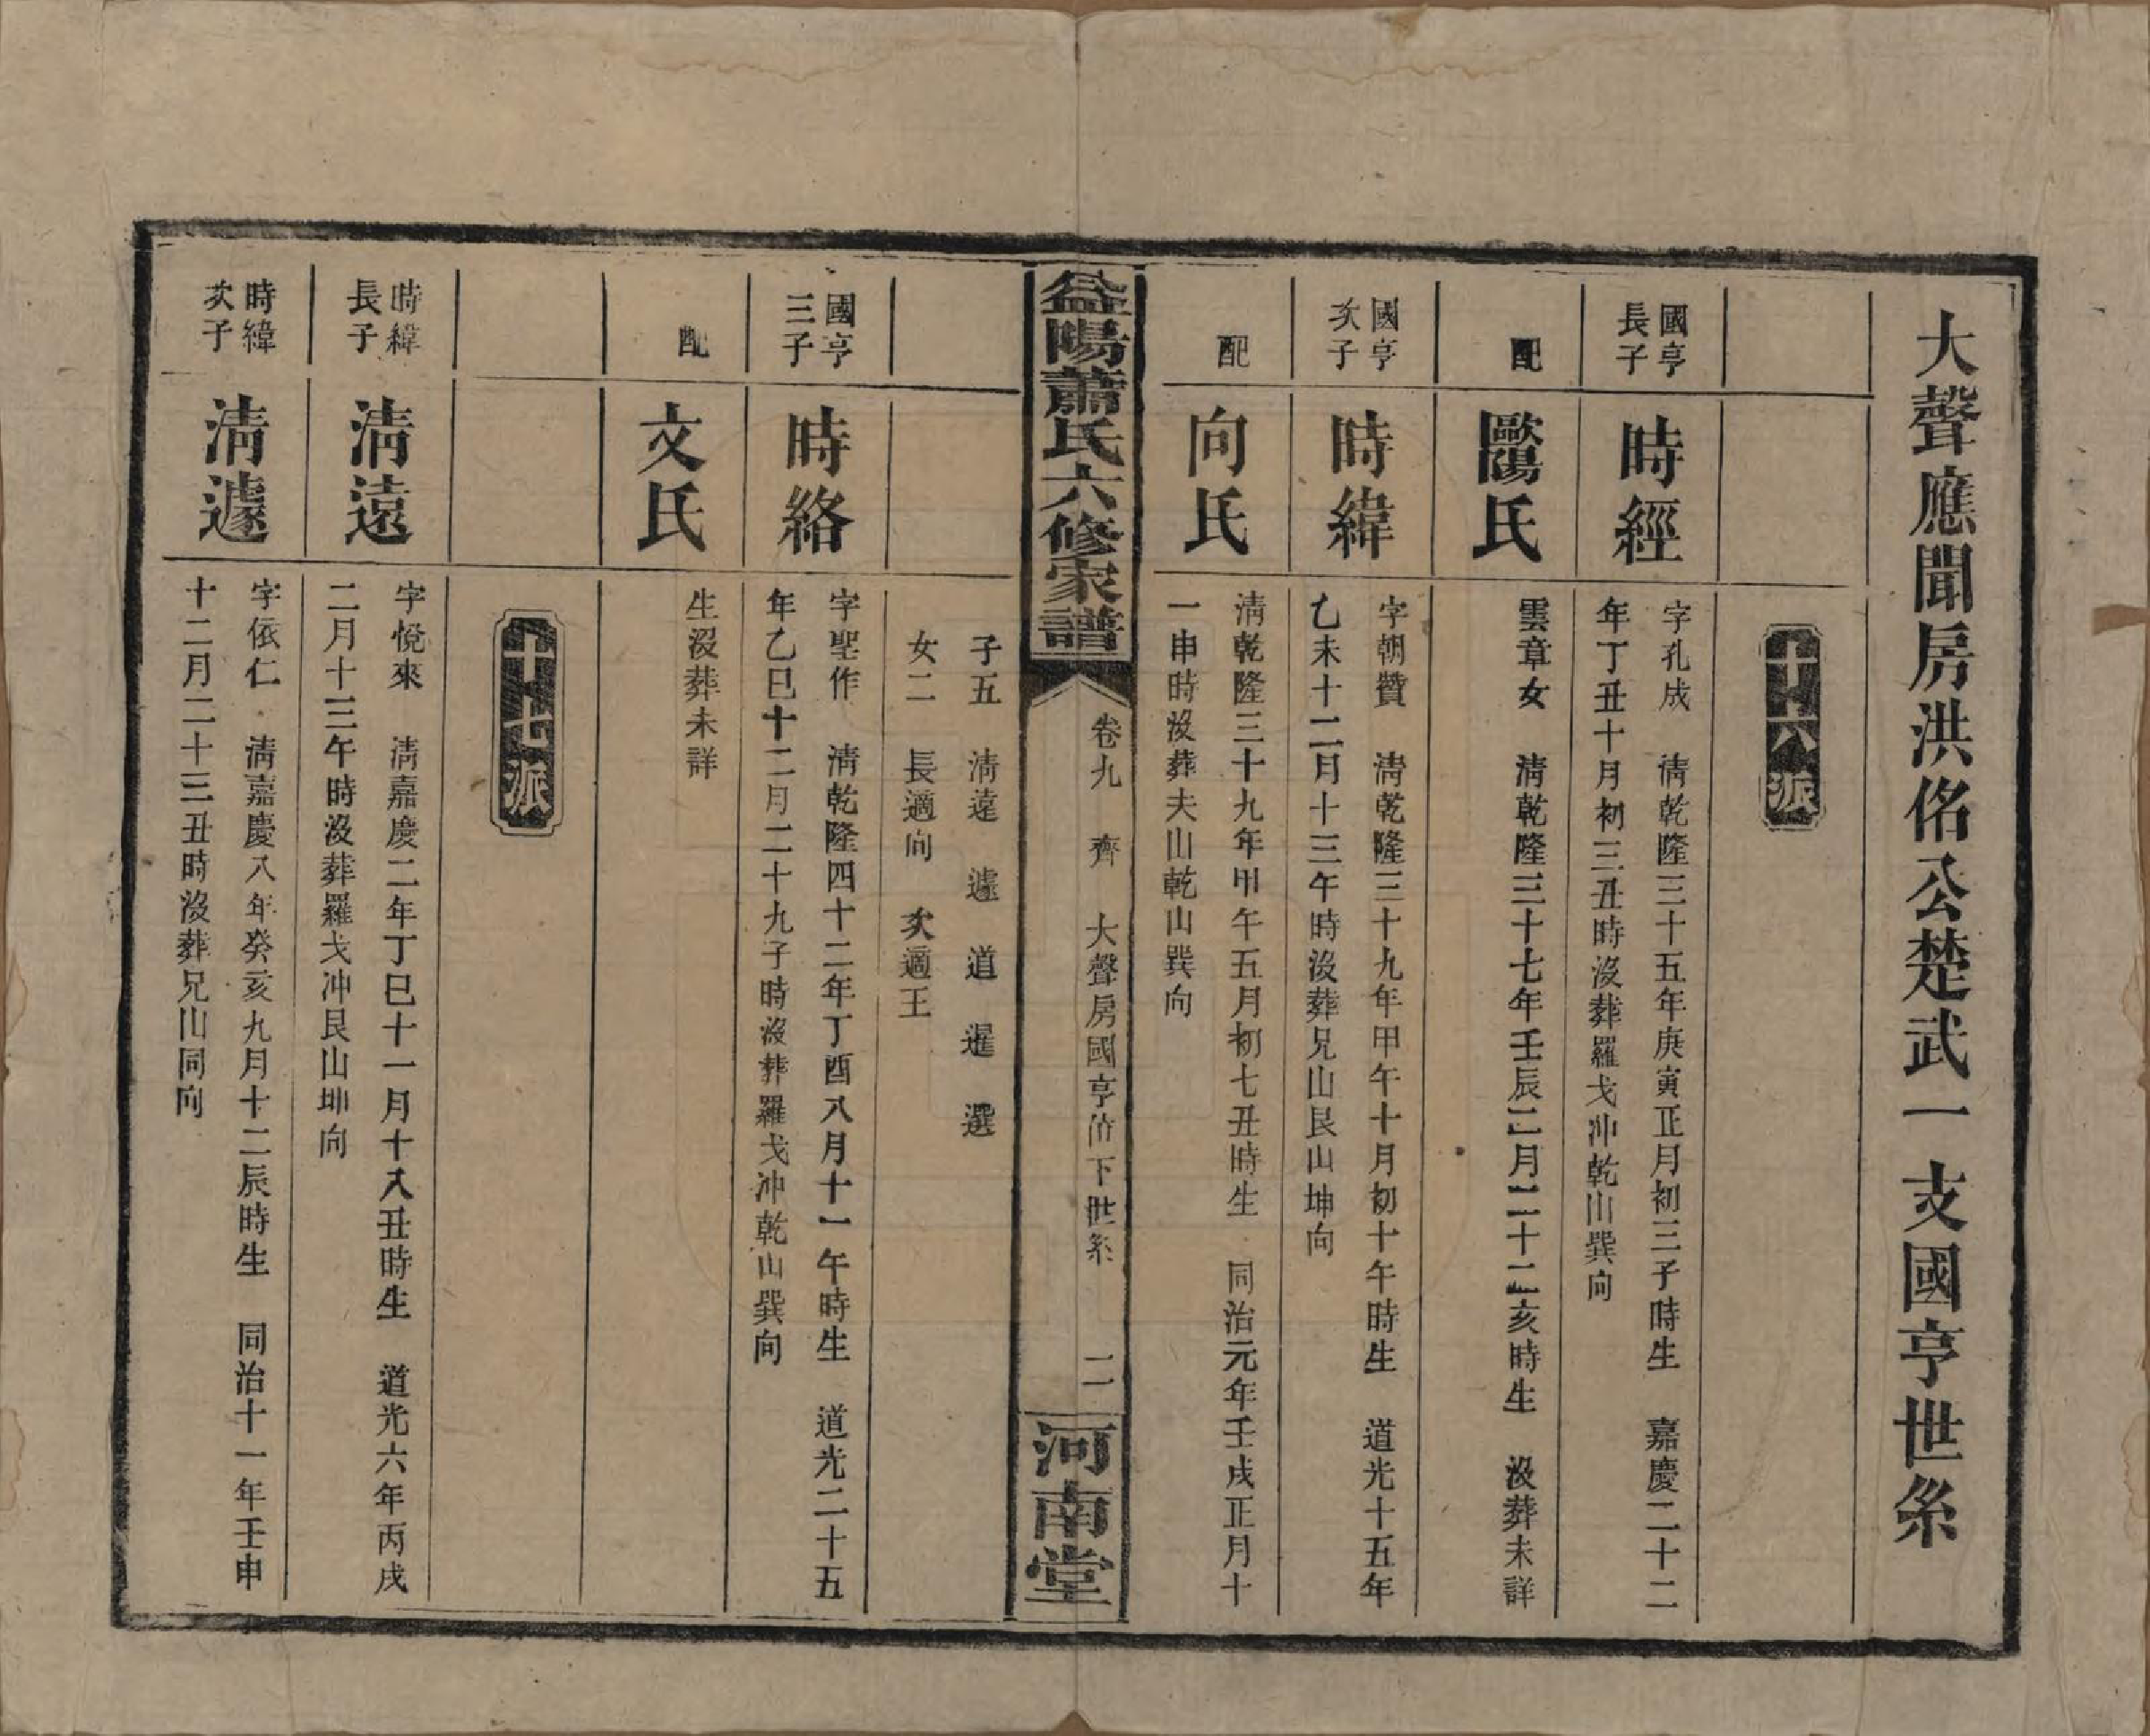 大聲應聞房洪佲公楚武一支國亨世系
十六派
國亨
長子
時經
字孔成　清乾隆三十五年庚寅正月初三子時生　嘉慶二十二
年丁丑十月初三丑時沒葬羅戈冲乾山巽向
配
歐陽氏
雲章女　清乾隆三十七年壬辰二月二十二亥時生　沒葬未詳
國亨
次子
時緯
字朝贊　清乾隆三十九年甲午十月初十午時生　道光十五年
乙未十二月十三午時沒葬兄山艮山坤向
配
向氏
清乾隆三十九年甲午五月初七丑時生　同治元年壬戌正月十
一申時沒葬夫山乾山巽向
益陽蕭氏六修家譜
卷九　齊　大聲房國亨位下世系　二
河南堂
子五　清遠　遽　道　暹　選
女二　長適向　次適王
國亨
三子
時絡
字聖作　清乾隆四十二年丁酉八月十一午時生　道光二十五
年乙巳十二月二十九子時沒葬羅戈冲乾山巽向
配
文氏
生沒葬未詳
十七派
時緯
長子
清遠
字悅來　清嘉慶二年丁巳十一月十八丑時生　道光六年丙戌
二月十三午時沒葬羅戈冲艮山坤向
時緯
次子
清遽
字依仁　清嘉慶八年癸亥九月十二辰時生　同治十一年壬申
十二月二十三丑時沒葬兄山同向